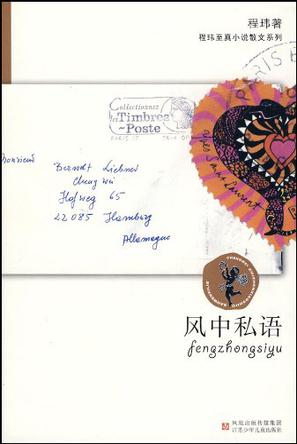 程玮著
程玮至真小说散文系列
Collectionnez
les Timbres
~Poste
PARIS
Yves Saint Laurent
Monsieur
Berndt Liebner
Cheng Wei
Hofweg 65
22085 Hamburg
Allemagne
风中私语
fengzhongsiyu
凤凰出版传媒集团
江苏少年儿童出版社